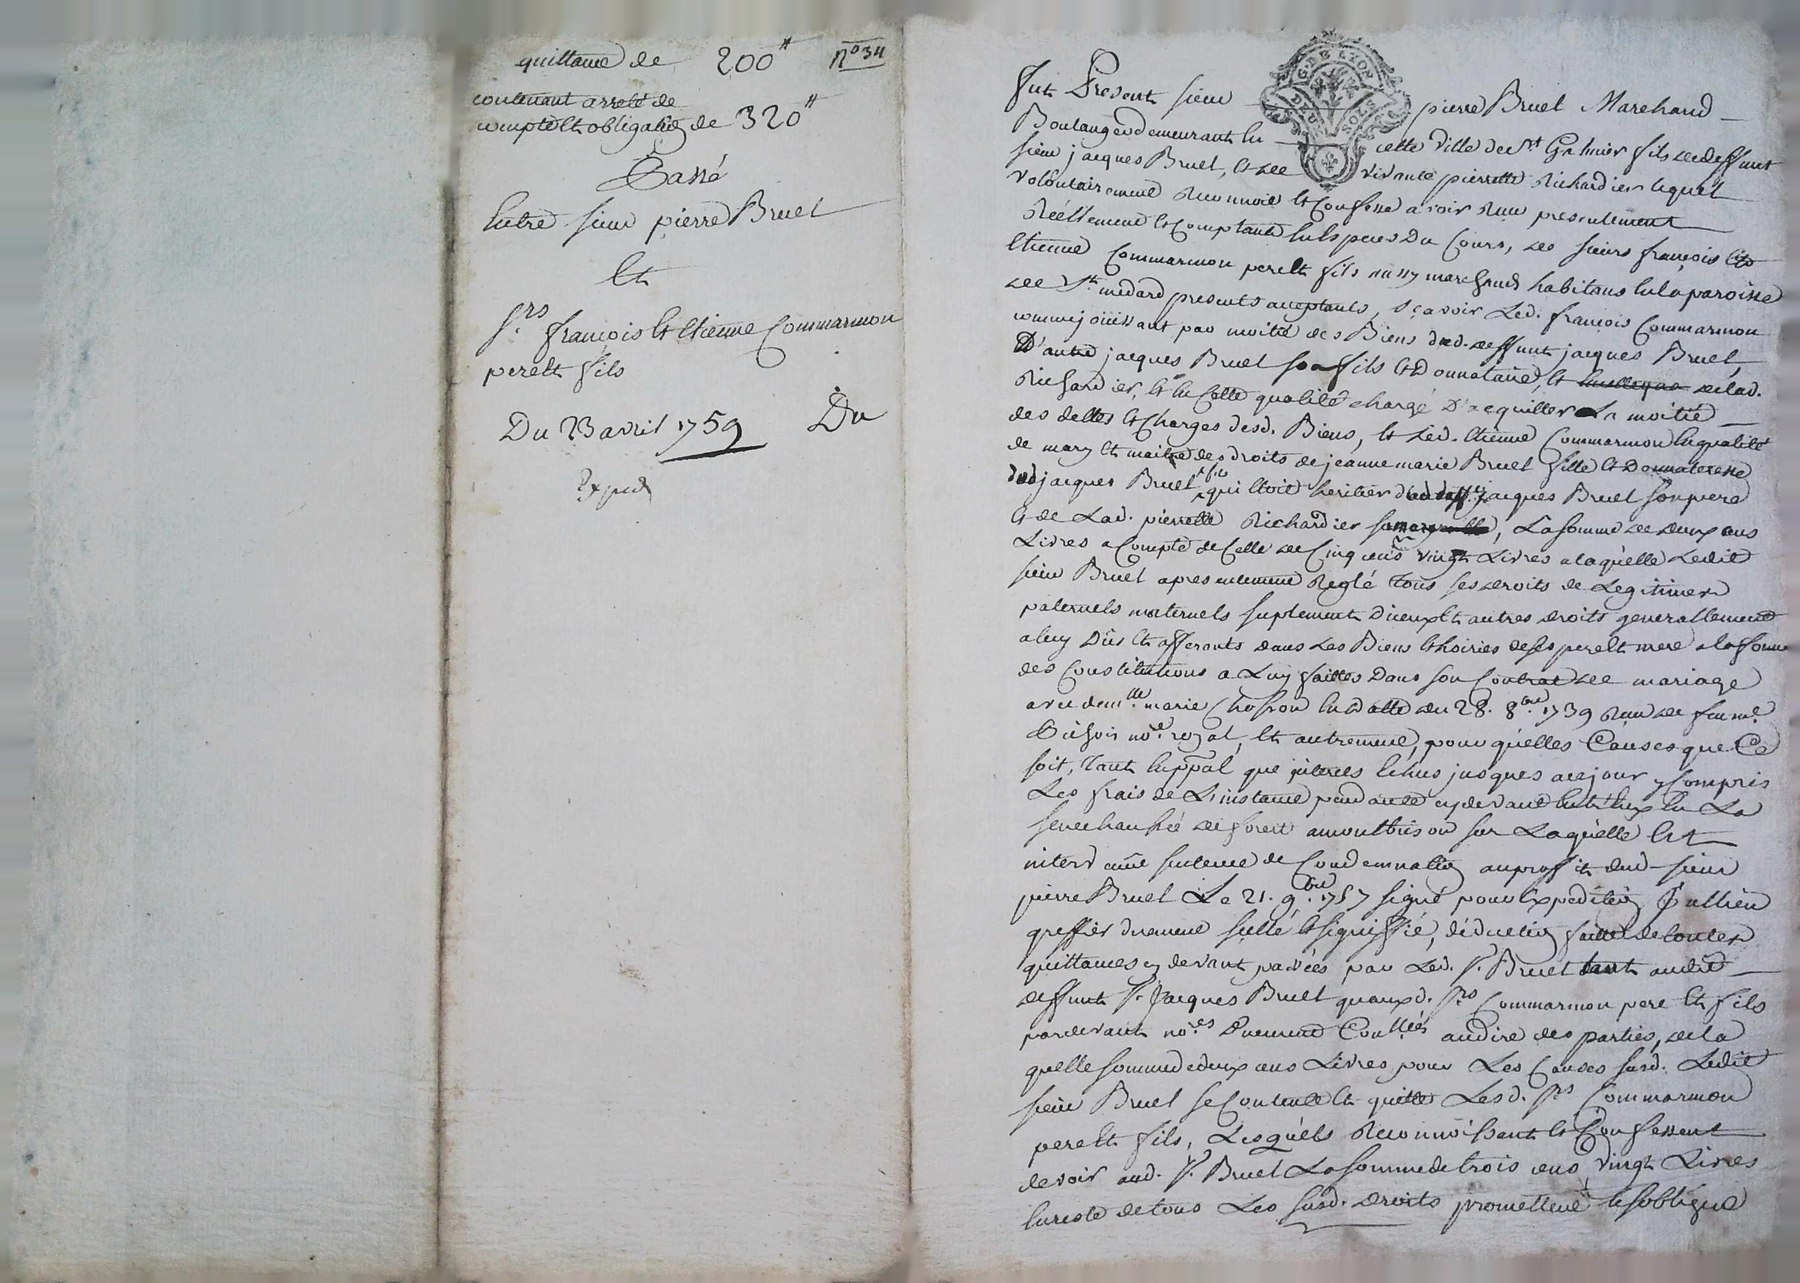 quittance de 200# n° 34
contenant arreté de
compte et obligation de 320#
Passé
Entre sieur pierre Bruel
Et
Srs françois et Etienne Commarmon
pere et fils
Du 23 avril 1759 Du
Exped
G. DE LYON
DEUX SOLS
Fut Present sieur pierre Bruel Marchand
Boulanger demeurant en cette ville de St Galmier fils de deffunt
sieur jacques Bruel, et de vivante pierrette Richardier lequel
volontairement Reconnoit et Confesse avoir Reçu presentement
Réellement et Comptant en Especes du Cours, des sieurs françois et
Etienne Commarmon pere et fils marchands habitans en la paroisse
de St medard presents acceptants, sçavoir Led. françois Commarmon
comme joüissant par moitié des Biens dud. deffunt jacques Bruel,
D'autre jacques Bruel son fils et Donnataire, et de lad.
Richardier, et en Cette qualité chargé D'acquitter La moitié
des dettes et Charges desd. Biens, et Led. Etienne Commarmon en qualité
de mary et maitre des droits de jeanne marie Bruel fille et Donnateresse
dud jacques Bruel fils qui Etoit heritier jacques Bruel son pere
et de Lad. pierrette Richardier, La somme de deux cens
Livres a Compte de Celle de Cinq cens vingt Livres a laquelle Ledit
sieur Bruel a presentement Reglé tous ses droits de Legitimes
paternels maternels suplement D'iceux et autres droits generallement
a luy Dûs et afferants dans Les Biens et hoiries de ses pere et mere a la forme
des Constitutions a Luy faittes Dans son Contrat de mariage
avec demlle marie en datte du 28. 8bre 1739 Reçu de feu me
nore royal, et autrement, pour quelles Causes que Ce
soit, Tant En ppal que interets Echus jusques a ce jour y Compris
Les frais de L'instance pendante cy devant Entr'Eux En La
senechaussée de forest a montbrison sur Laquelle Est
intervenüe sentence de Condemnation au proffit dud sieur
pierre Bruel Le 21. 9bre 1757 signé pour Expedition Jullien
greffier duement sellé et signiffié, déduction faitte de touttes
quittances cy devant passées par Led. S. Bruel tant audit
deffunt S. Jacques Bruel qu'auxd. Srs Commarmon pere et fils
pardevant nores Duement Contlées au dire des parties, de la
quelle somme de deux cens Livres pour Les Causes susd. Ledit
sieur Bruel se Contente et quitte Lesd. Srs Commarmon
pere et fils, Lesquels Reconnoissent et Confessent
devoir aud. S. Bruel La somme de trois cens vingt Livres
En reste de tous Les susd. droits promettent et s'obligent